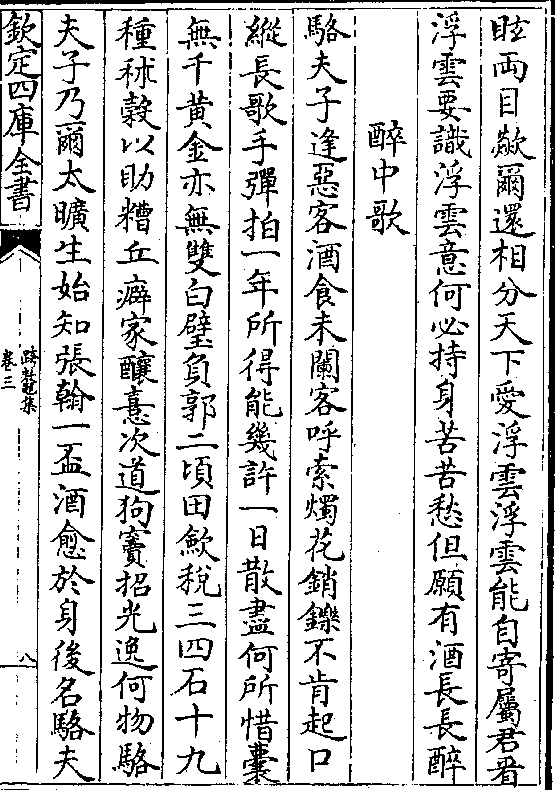 眩両目歘爾還相分天下愛浮雲浮雲能自寄屬君看
浮雲要識浮雲意何必持身苦苦愁但願有酒長長醉
醉中歌
駱夫子逢惡客酒食未闌客呼索燭花銷鑠不肯起口
縱長歌手彈拍一年所得能幾許一日散盡何所惜囊
無千黄金亦無雙白璧負郭二頃田歘稅三四石十九
種秫穀以助糟丘癖家釀憙次道狗竇招光逸何物駱
夫子乃爾太曠生始知張翰一盃酒愈於身後名駱夫
欽定四庫全書
跨鼇集
卷三
八